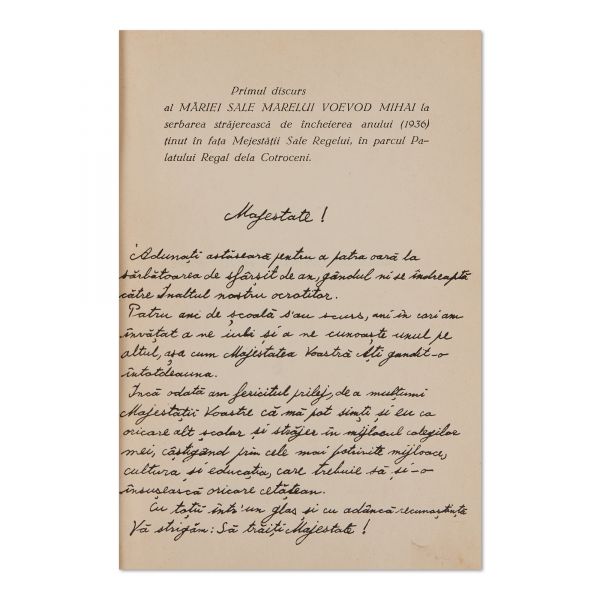 Primul discurs
al MĂRIEI SALE MARELUI VOEVOD MIHAI la
serbarea străjerească de încheierea anului (1936)
ținut în fața Mejestății Sale Regelui, în parcul Pa-
latului Regal dela Cotroceni.
Majestate !
Adunați astăseară pentru a patra oară la
sărbătoarea de sfârșit de an, gândul ni se îndreaptă
către Inaltul nostru ocrotitor.
Patru ani de școală s'au scurs, ani în cari am
învătat a ne iubi și a ne cunoaște unul pe
altul, așa cum Majestatea Voastră Ați gandit-o
întotdeauna.
Incă odată am fericitul prilej, de a mulțumi
Majestății Voastre că mă pot simți și eu ca
oricare alt școlar și străjer în mijlocul colegilor
mei, câștigând prin cele mai potrivite mijloace,
cultura și educația, care trebuie să și-o
însușească oricare cetățean.
Cu toții într'un glas și cu adâncă recunoștință
Vă strigăm: Să trăiți Majestate !